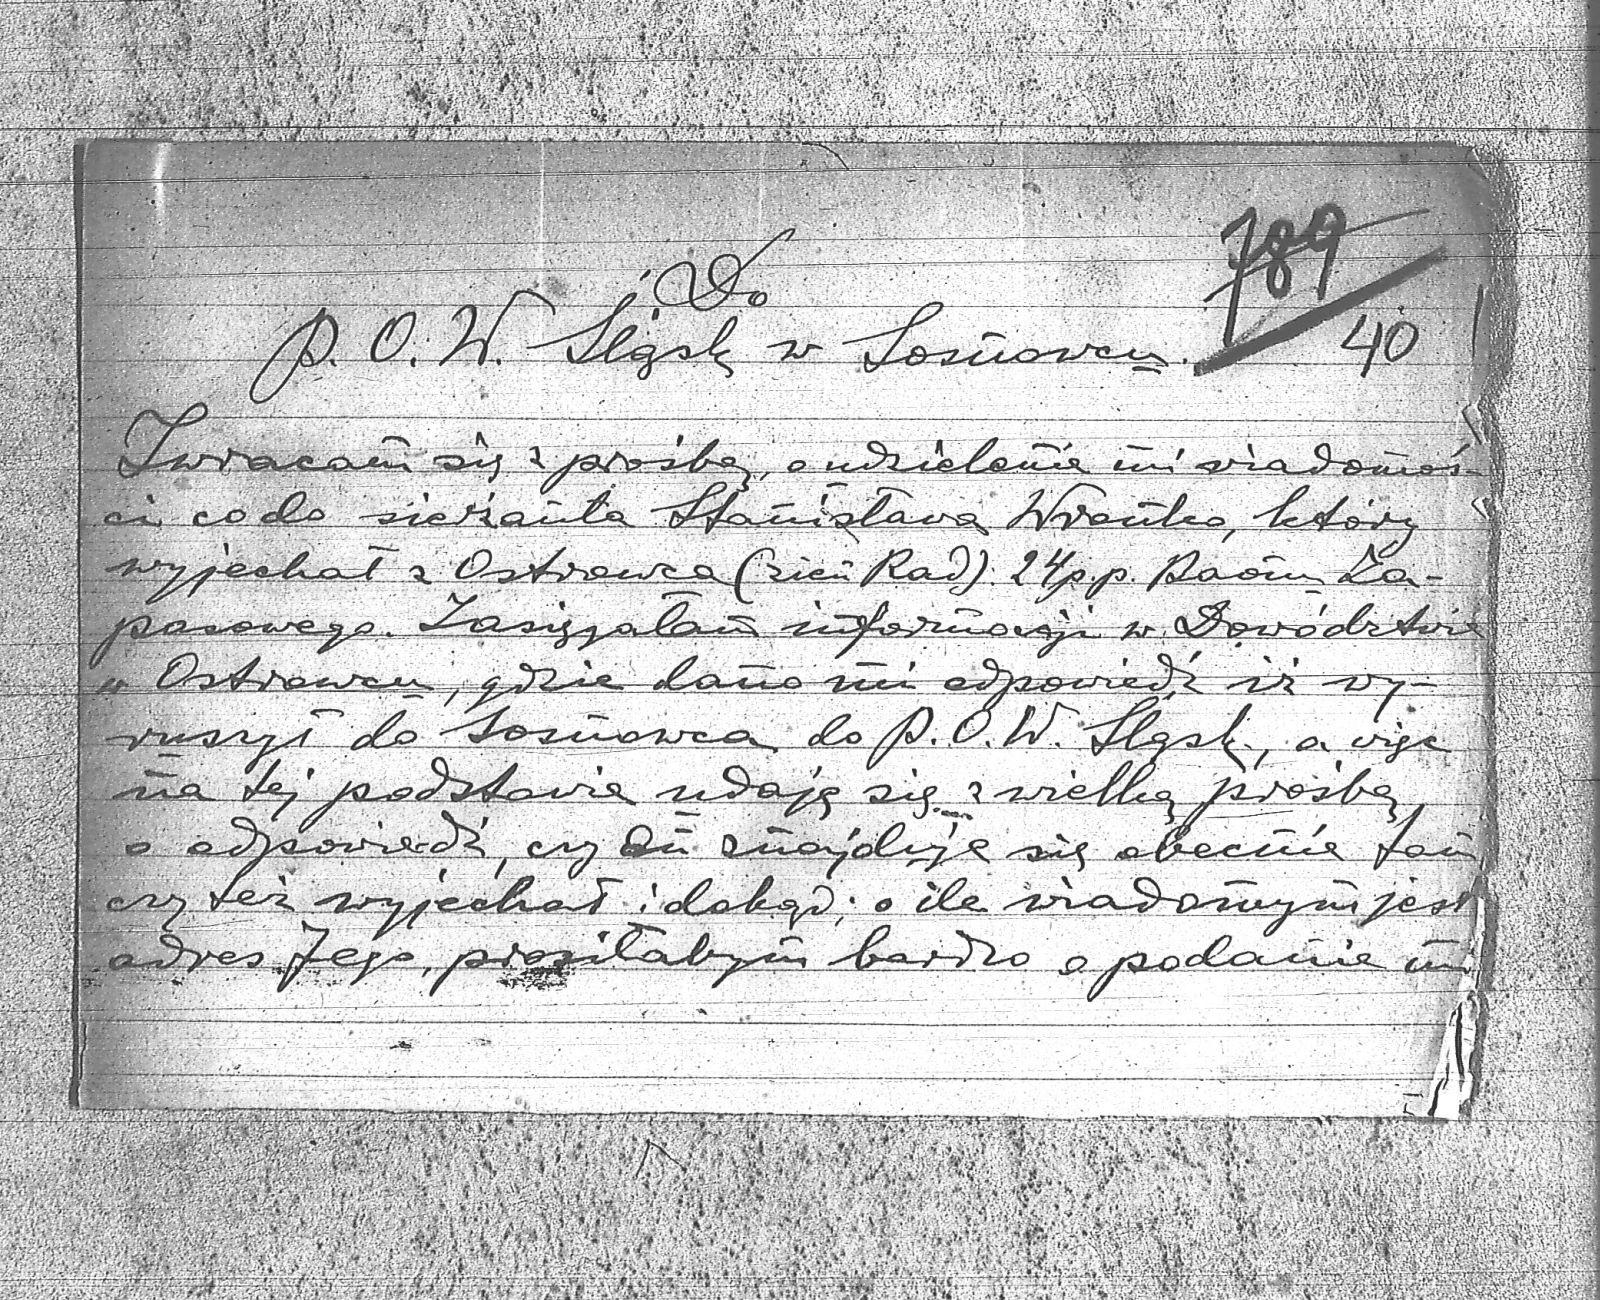 Do
789
P. O. W. Śląsk w Sosnowcu.
40
Zwracam się z prośbą, o udzielenie mi wiadomoś-
ci co do sierżanta Stanisława Wronko, który
wyjechał z Ostrowca (ziem Rad). 24 p.p. Baonu Za-
pasowego. Zasięgałam informacji w Dowództwie
w Ostrowcu, gdzie dano mi odpowiedź iż wy-
ruszył do Sosnowca do P. O. W. Śląsk, a więc
na tej podstawie udaję się z wielką prośbą
o odpowiedź, czy on znajduje się obecnie tam
czy też wyjechał i dokąd; o ile wiadomym jest
adres Jego, prosiłabym bardzo o podanie mi